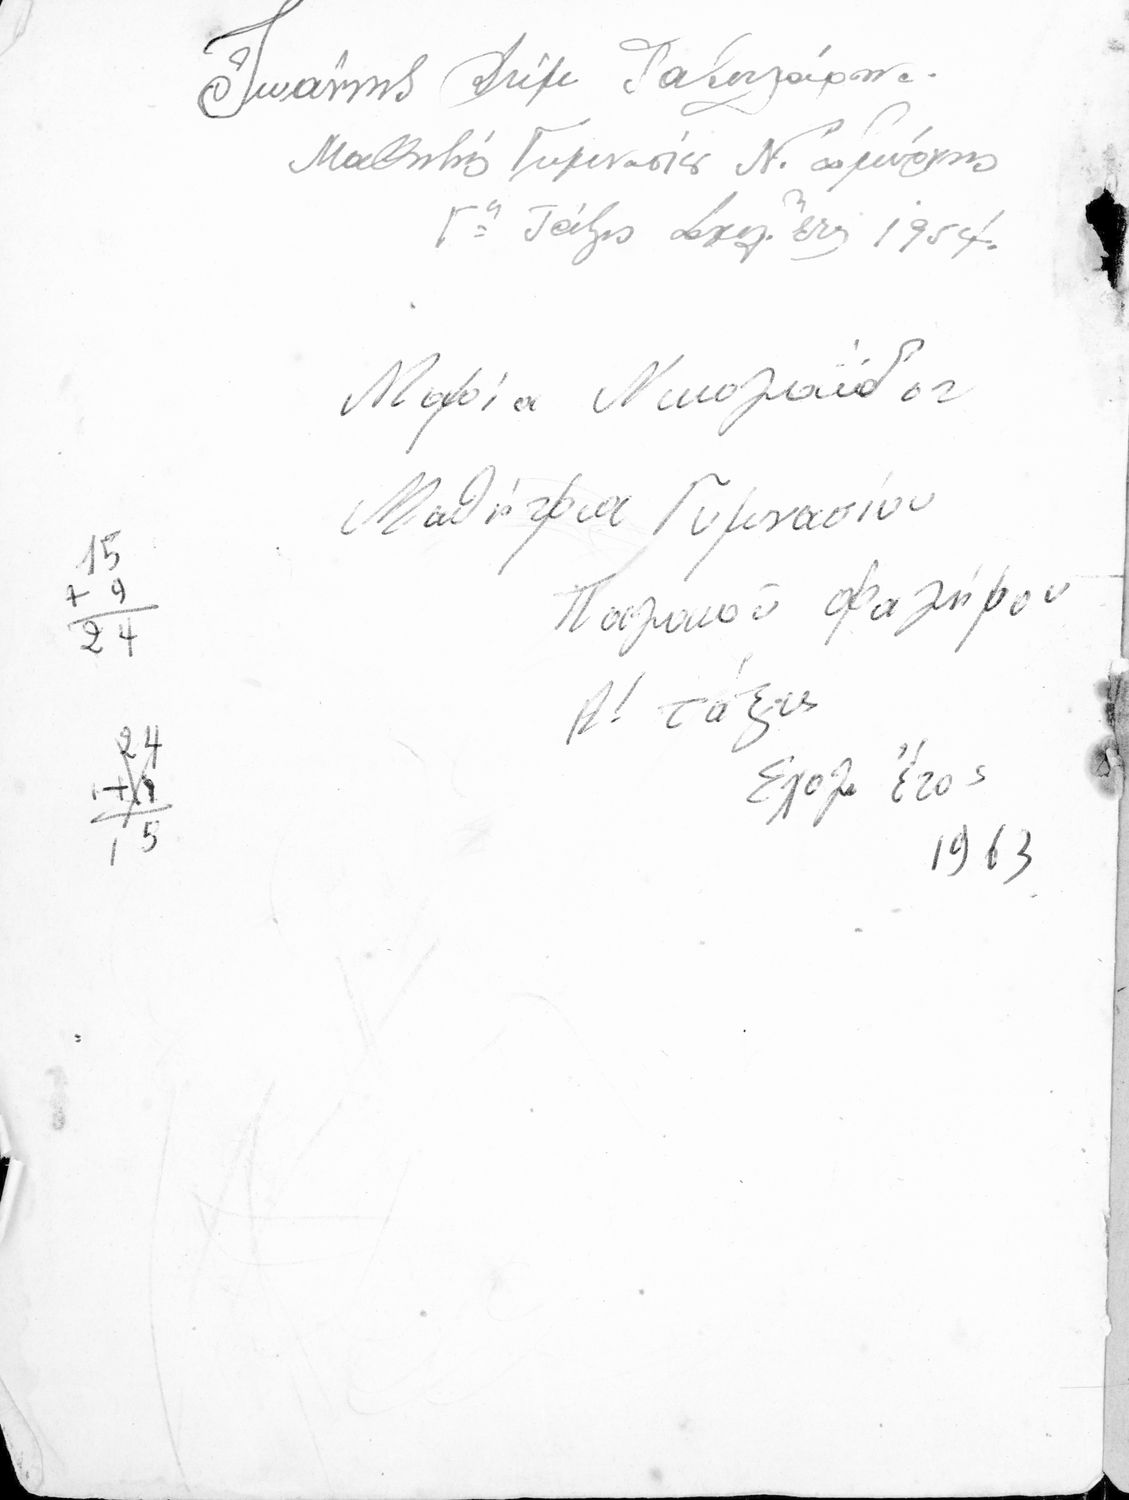 Ἰωάννης Δημ
Μαθητής Γυμνασίου Ν. Σμύρνης
Γη Τάξις Σχολ. ἔτος 1954.
Μαρία Νικολαΐδου
Μαθήτρια Γυμνασίου
Παλαιοῦ Φαλήρου
Α! τάξις
Σχολ ἔτος
1963
15
+ 9
24
24
15